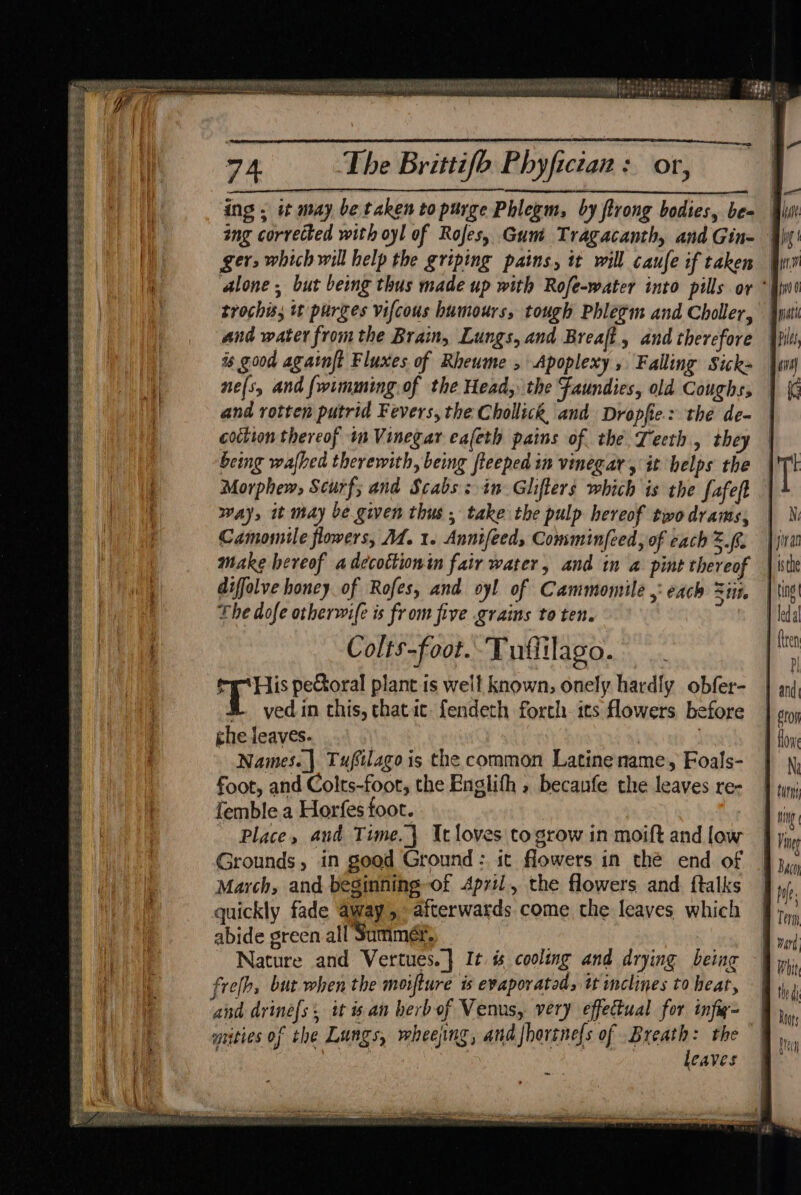 74 The Brittiſh Phyſician: or,
ing; it may be taken to purge Phlegm, by ſtrong bodies, be-
ing corrected with oyl of Roſes, Gum Tragacanth, and Gin-
ger, which will help the griping pains, it will cauſe if taken
alone; but being thus made up with Roſe-water into pills or
trochis, it purges viſcous humours, tough Phlegm and Choller,
and water from the Brain, Lungs, and Breaſt, and therefore
is good againſt Fluxes of Rheume, Apoplexy, Falling Sick-
neſs, and ſwimming of the Head, the Jaundies, old Coughs,
and rotten putrid Fevers, the Chollick, and Dropſie: the de-
coction thereof in Vinegar eaſeth pains of the Teeth, they
being waſhed therewith, being ſteeped in vinegar, it helps the
Morphew, Scurf, and Scabs: in Gliſters which is the ſafeſt
way, it may be given thus; take the pulp hereof two drams,
Camomile flowers, M. 1. Anniſeed, Comminſeed, of each ℥.ß.
make hereof a decoction in fair water, and in a pint thereof
diſſolve honey of Roſes, and oyl of Cammomile, each ℥iii.
The doſe otherwiſe is from five grains to ten.
Colts-foot. Tuſſilago.
THis pectoral plant is well known, onely hardly obſer-
ved in this, that it ſendeth forth its flowers before
the leaves.
Names.] Tuſſilago is the common Latine name, Foals-
foot, and Colts-foot, the Engliſh, becauſe the leaves re-
ſemble a Horſes foot.
Place, and Time.] It loves to grow in moiſt and low
Grounds, in good Ground: it flowers in the end of
March, and beginning of April, the flowers and ſtalks
quickly fade away, afterwards come the leaves which
abide green all Summer.
Nature and Vertues.] It is cooling and drying being
freſh, but when the moiſture is evaporated, it inclines to heat,
and drineſs; it is an herb of Venus, very effectual for infir-
mities of the Lungs, wheeſing, and ſhortneſs of Breath: the
leaves